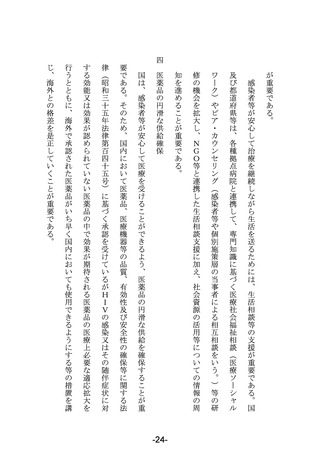 が重要である。
感染者等が安心して治療を継続しながら生活を送るためには、生活相談等の支援が重要である。国
及び都道府県等は、各種拠点病院と連携して、専門知識に基づく医療社会福祉相談（医療ソーシャル
ワーク）やピア・カウンセリング（感染者等や個別施策層の当事者による相互相談をいう。）等の研
修の機会を拡大し、NGO等と連携した生活相談支援に加え、社会資源の活用等についての情報の周
知を進めることが重要である。
四　医薬品の円滑な供給確保
国は、感染者等が安心して医療を受けることができるよう、医薬品の円滑な供給を確保することが重
要である。そのため、国内において医薬品、医療機器等の品質、有効性及び安全性の確保等に関する法
律（昭和三十五年法律第百四十五号）に基づく承認を受けているがHIVの感染又はその随伴症状に対
する効能又は効果が認められていない医薬品の中で効果が期待される医薬品の医療上必要な適応拡大を
行うとともに、海外で承認された医薬品がいち早く国内においても使用できるようにする等の措置を講
じ、海外との格差を是正していくことが重要である。
-24-